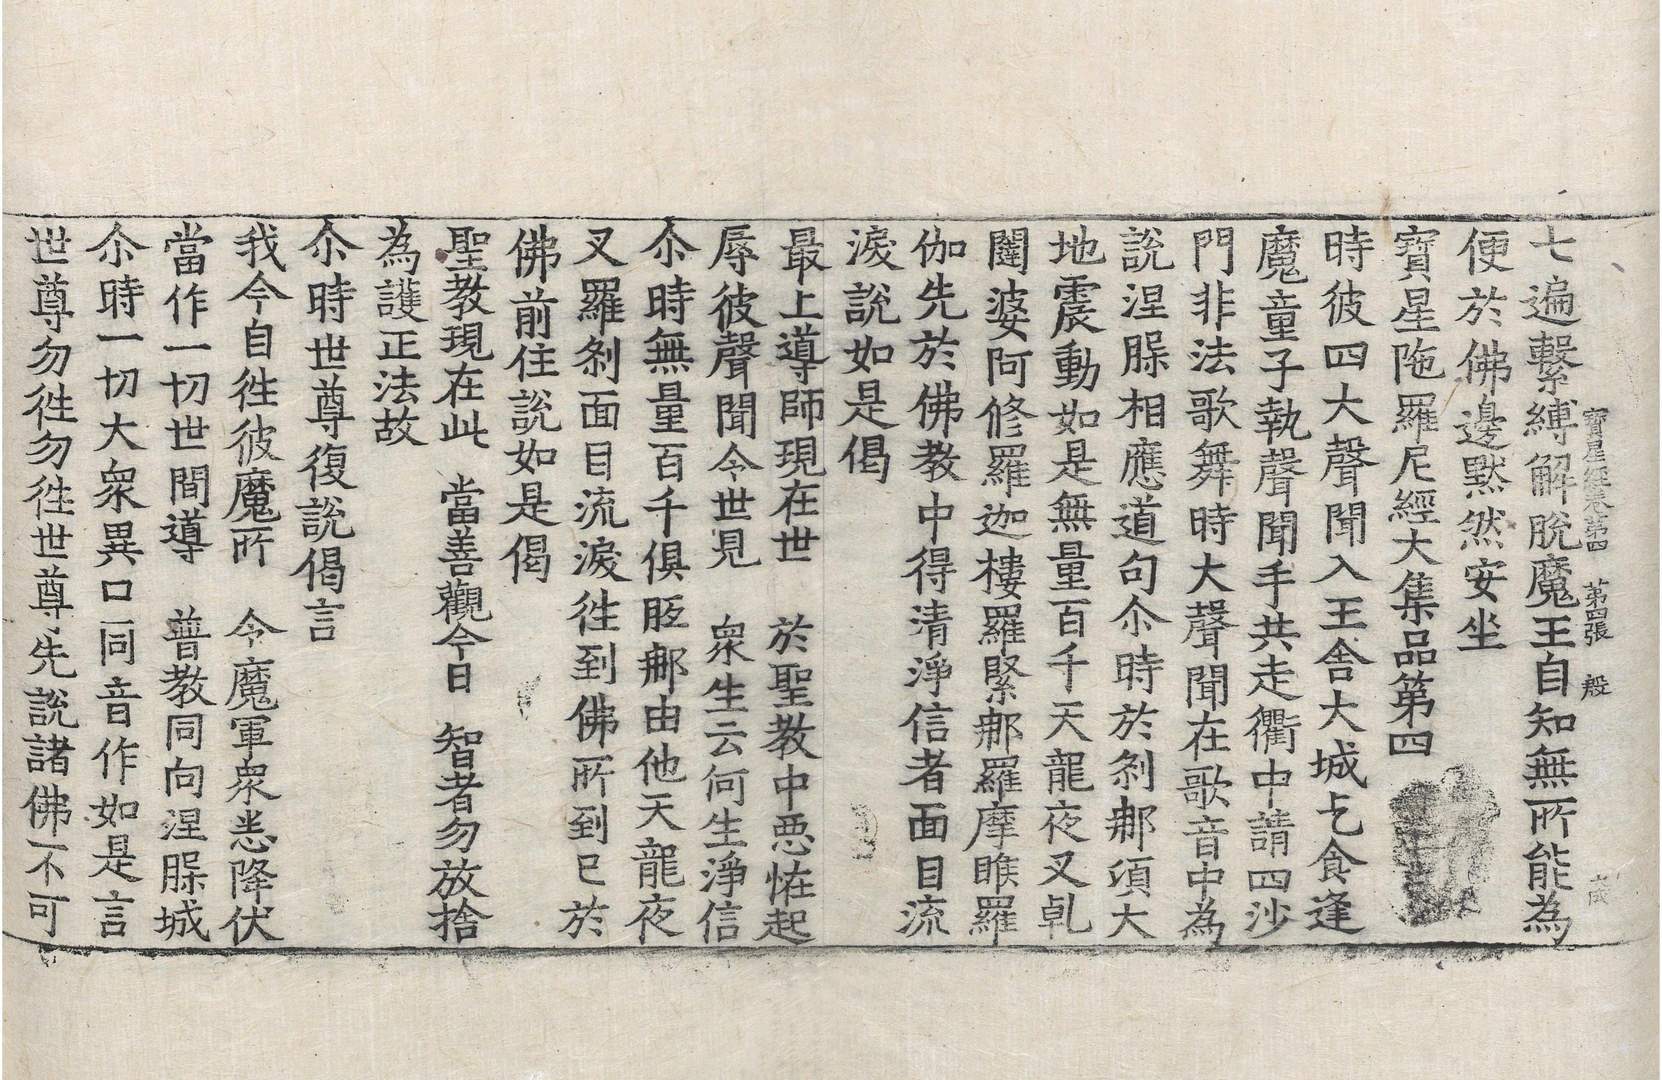 寶星經卷第四 第四張 殷
七遍繫縛解脫魔王自知無所能為
便於佛邊默然安坐
寶星陁羅尼經大集品第四
時彼四大聲聞入王舍大城乞食逢
魔童子執聲聞手共走衢中請四沙
門非法歌舞時大聲聞在歌音中為
說涅槃相應道句尒時於剎那須大
地震動如是無量百千天龍夜叉乹
闥婆阿修羅迦樓羅緊那羅摩睺羅
伽先於佛教中得清淨信者面目流
淚說如是偈
最上導師現在世 於聖教中惡恠起
辱彼聲聞今世見 衆生云何生淨信
尒時無量百千俱胝那由他天龍夜
叉羅剎面目流淚徃到佛所到已於
佛前住說如是偈
聖教現在此 當善觀今日 智者勿放捨
為護正法故
尒時世尊復說偈言
我今自徃彼魔所 令魔軍衆悉降伏
當作一切世間導 普教同向涅槃城
尒時一切大衆異口同音作如是言
世尊勿徃勿徃世尊先說諸佛不可